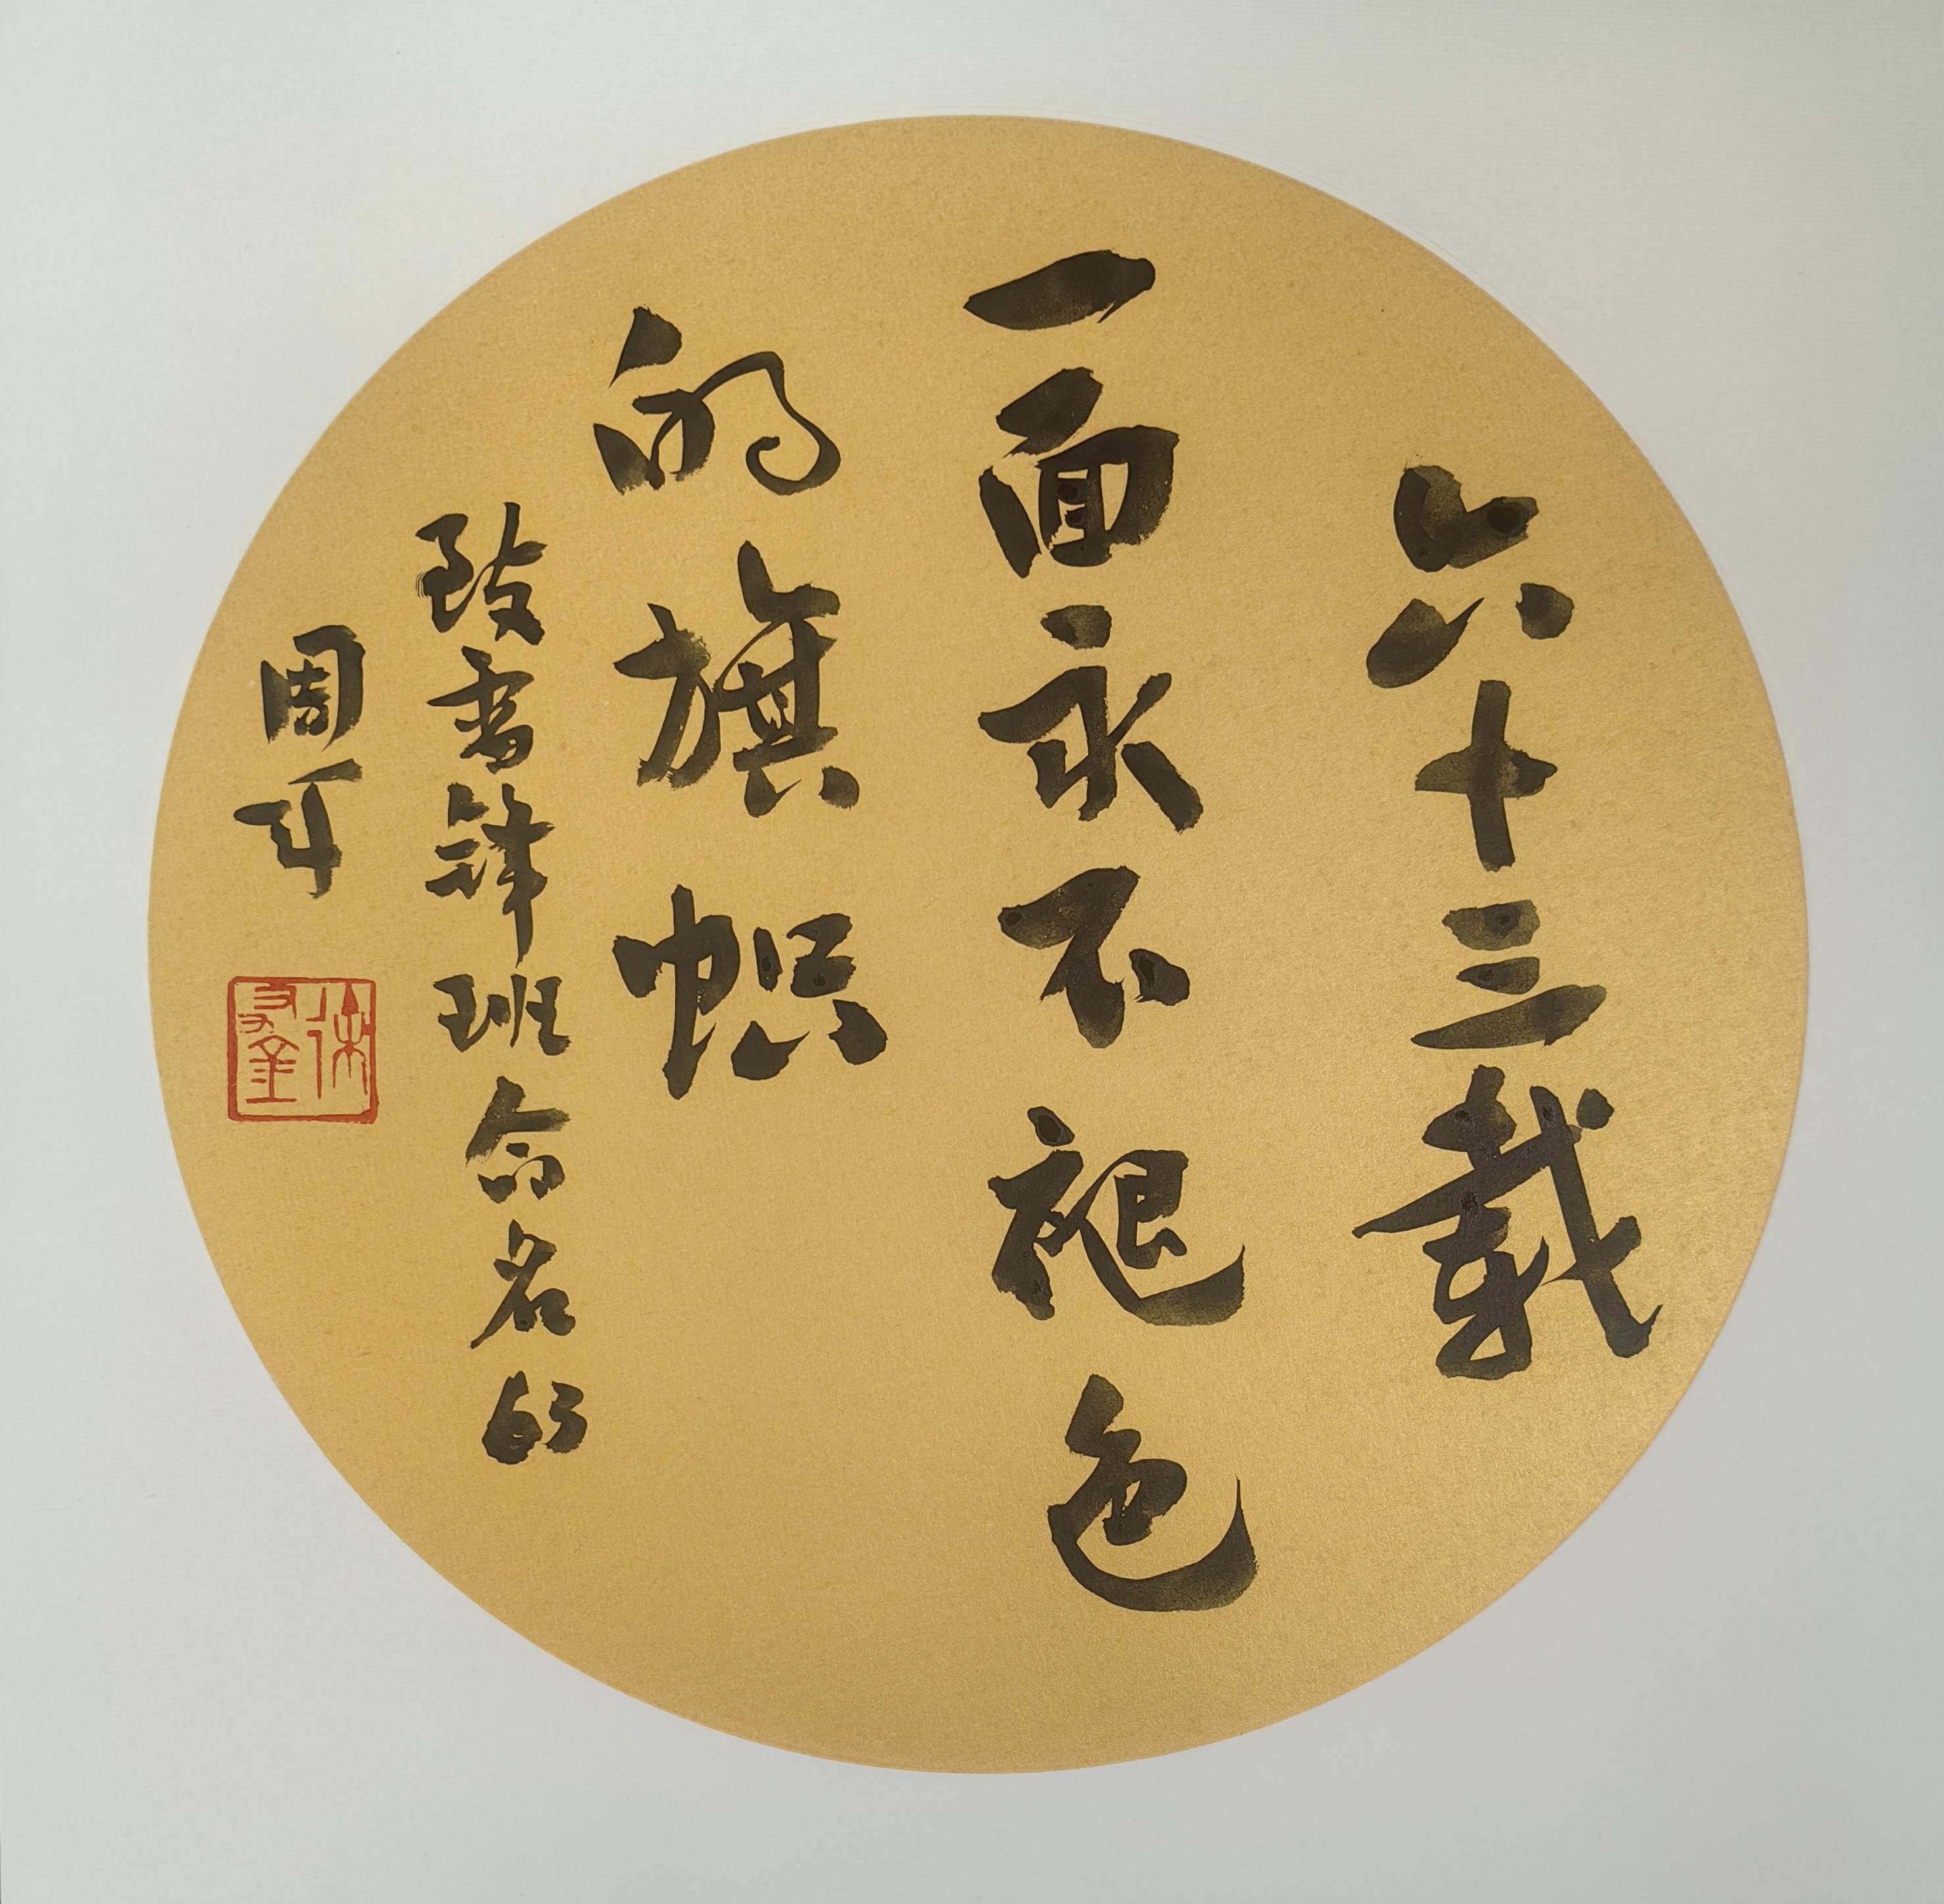 六十三载
一面永不褪色
的旗帜
致雷锋班命名63
周年